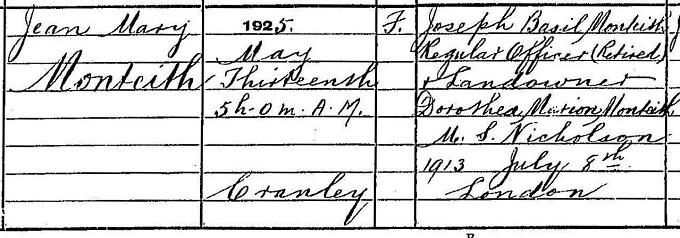 Jean Mary
Monteith
1925.
May
Thirteenth
5h. 0m. A.M.
Cranley
F.
Joseph Basil Monteith
Regular Officer (Retired)
& Landowner
Dorothea Marion Monteith
M. S. Nicholson
1913 July 8th
London